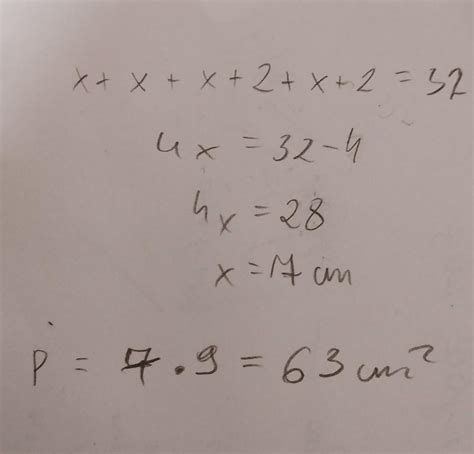 x + x + x + 2 + x + 2 = 32
4x = 32 - 4
4x = 28
x = 7 cm
P = 7 . 9 = 63 cm²